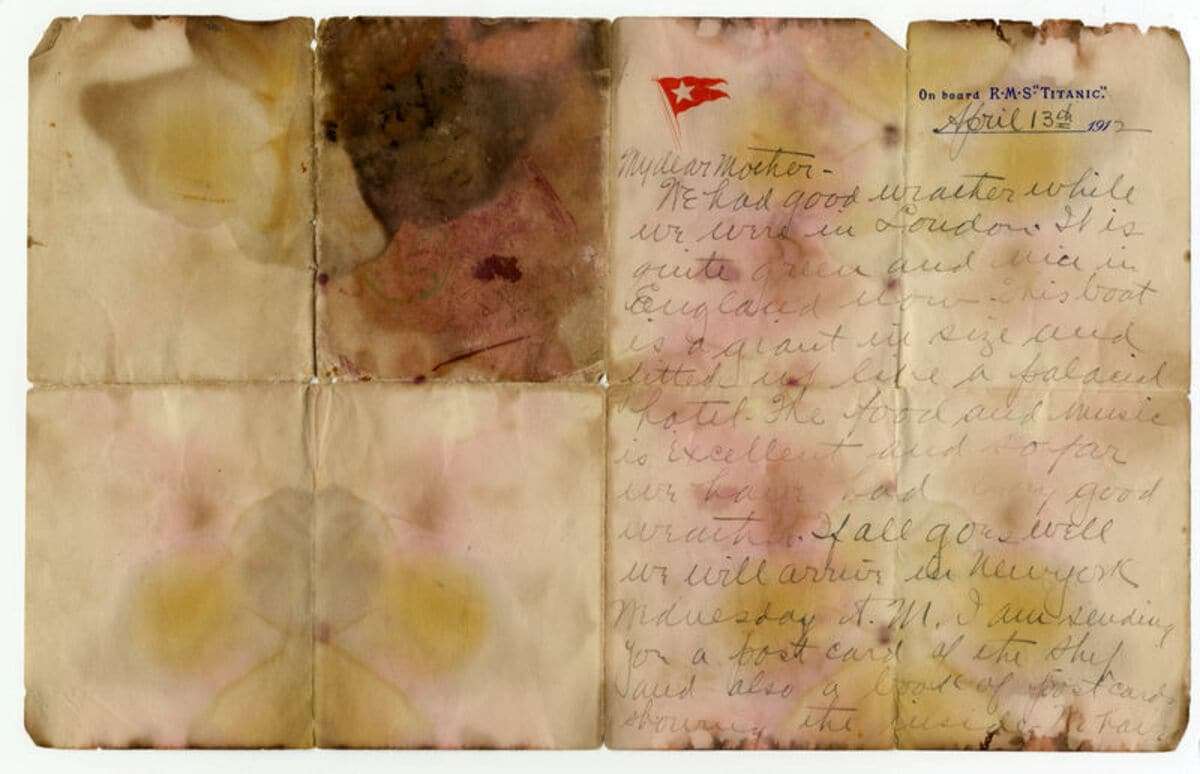 On board R·M·S "TITANIC".
April 13th 1912
My dear Mother-
We had good weather while
we were in London. It is
quite green and nice in
England now. This boat
is a giant in size and
fitted up like a palacial
hotel. The food and music
is excellent and so far
we have had very good
weather. If all goes well
we will arrive in New york
Wednesday A.M. I am sending
you a post card of the ship
and also a book of post cards
showing the inside